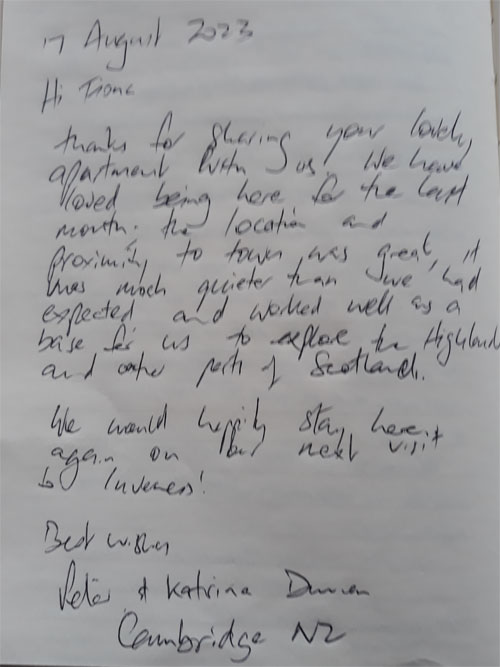 17 August 2023
Hi Fiona
thanks for sharing your lovely
apartment with us. We have
loved being here for the last
month. the location and
proximity to town was great, it
was much quieter than we had
expected and worked well as a
base for us to explore the Highlands
and other parts of Scotland.
We would happily stay here
again on our next visit
to Inverness!
Best wishes
Peter & Katrina
Cambridge NZ